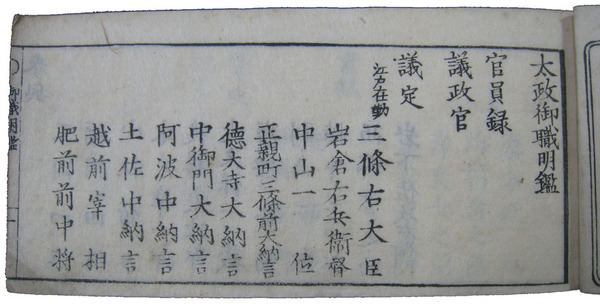 太政御職明鑑
官員録
議政官
議定
江戸在勤
三條右大臣
岩倉右兵衞督
中山一位
正親町三條前大納言
德大寺大納言
中御門大納言
阿波中納言
土佐中納言
越前宰相
肥前前中将